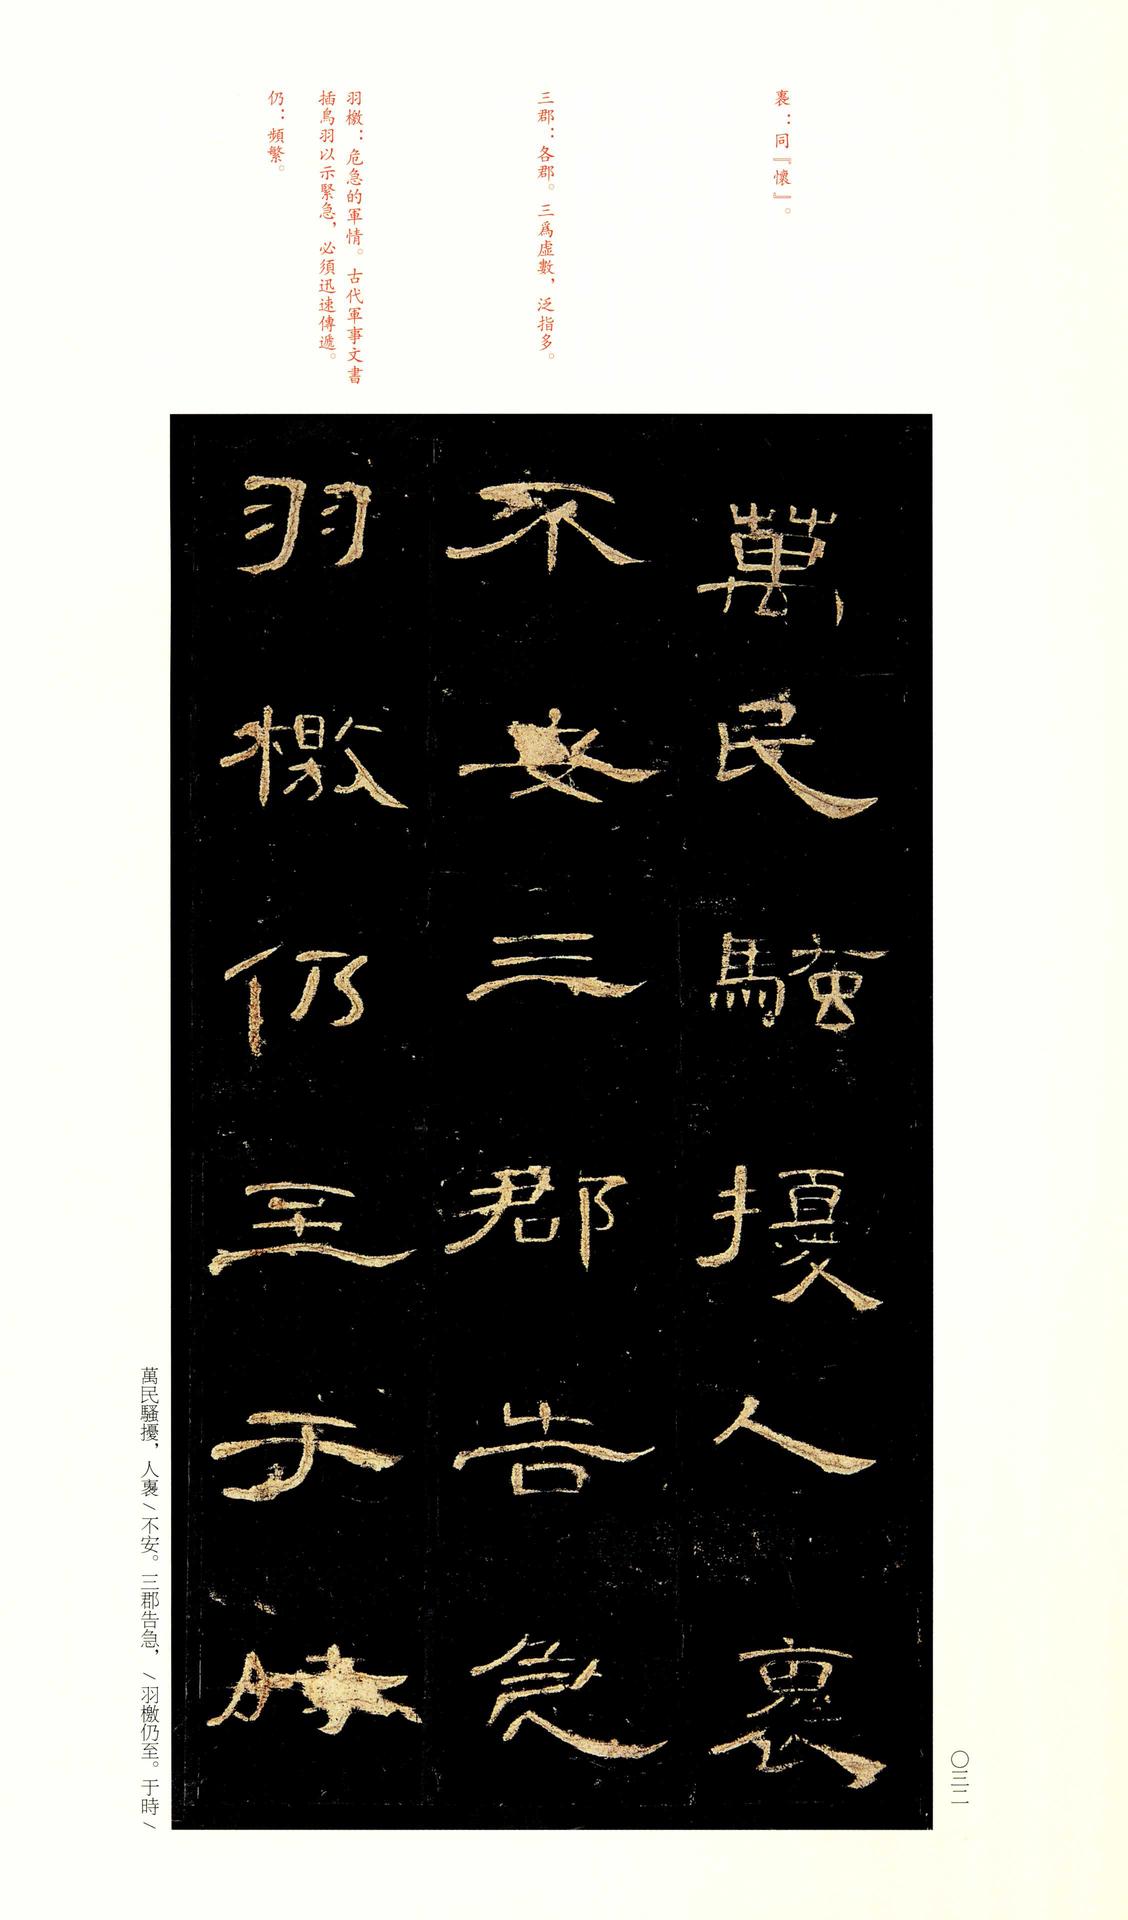 裹：同『懷』。
三郡：各郡。三爲虛數，泛指多。
羽檄：危急的軍情。古代軍事文書
插鳥羽以示緊急，必須迅速傳遞。
仍：頻繁。
萬民騷擾人裹
不安三郡告急
羽檄仍至于時
萬民騷擾，人裹／不安。三郡告急，／羽檄仍至。于時／
〇三二